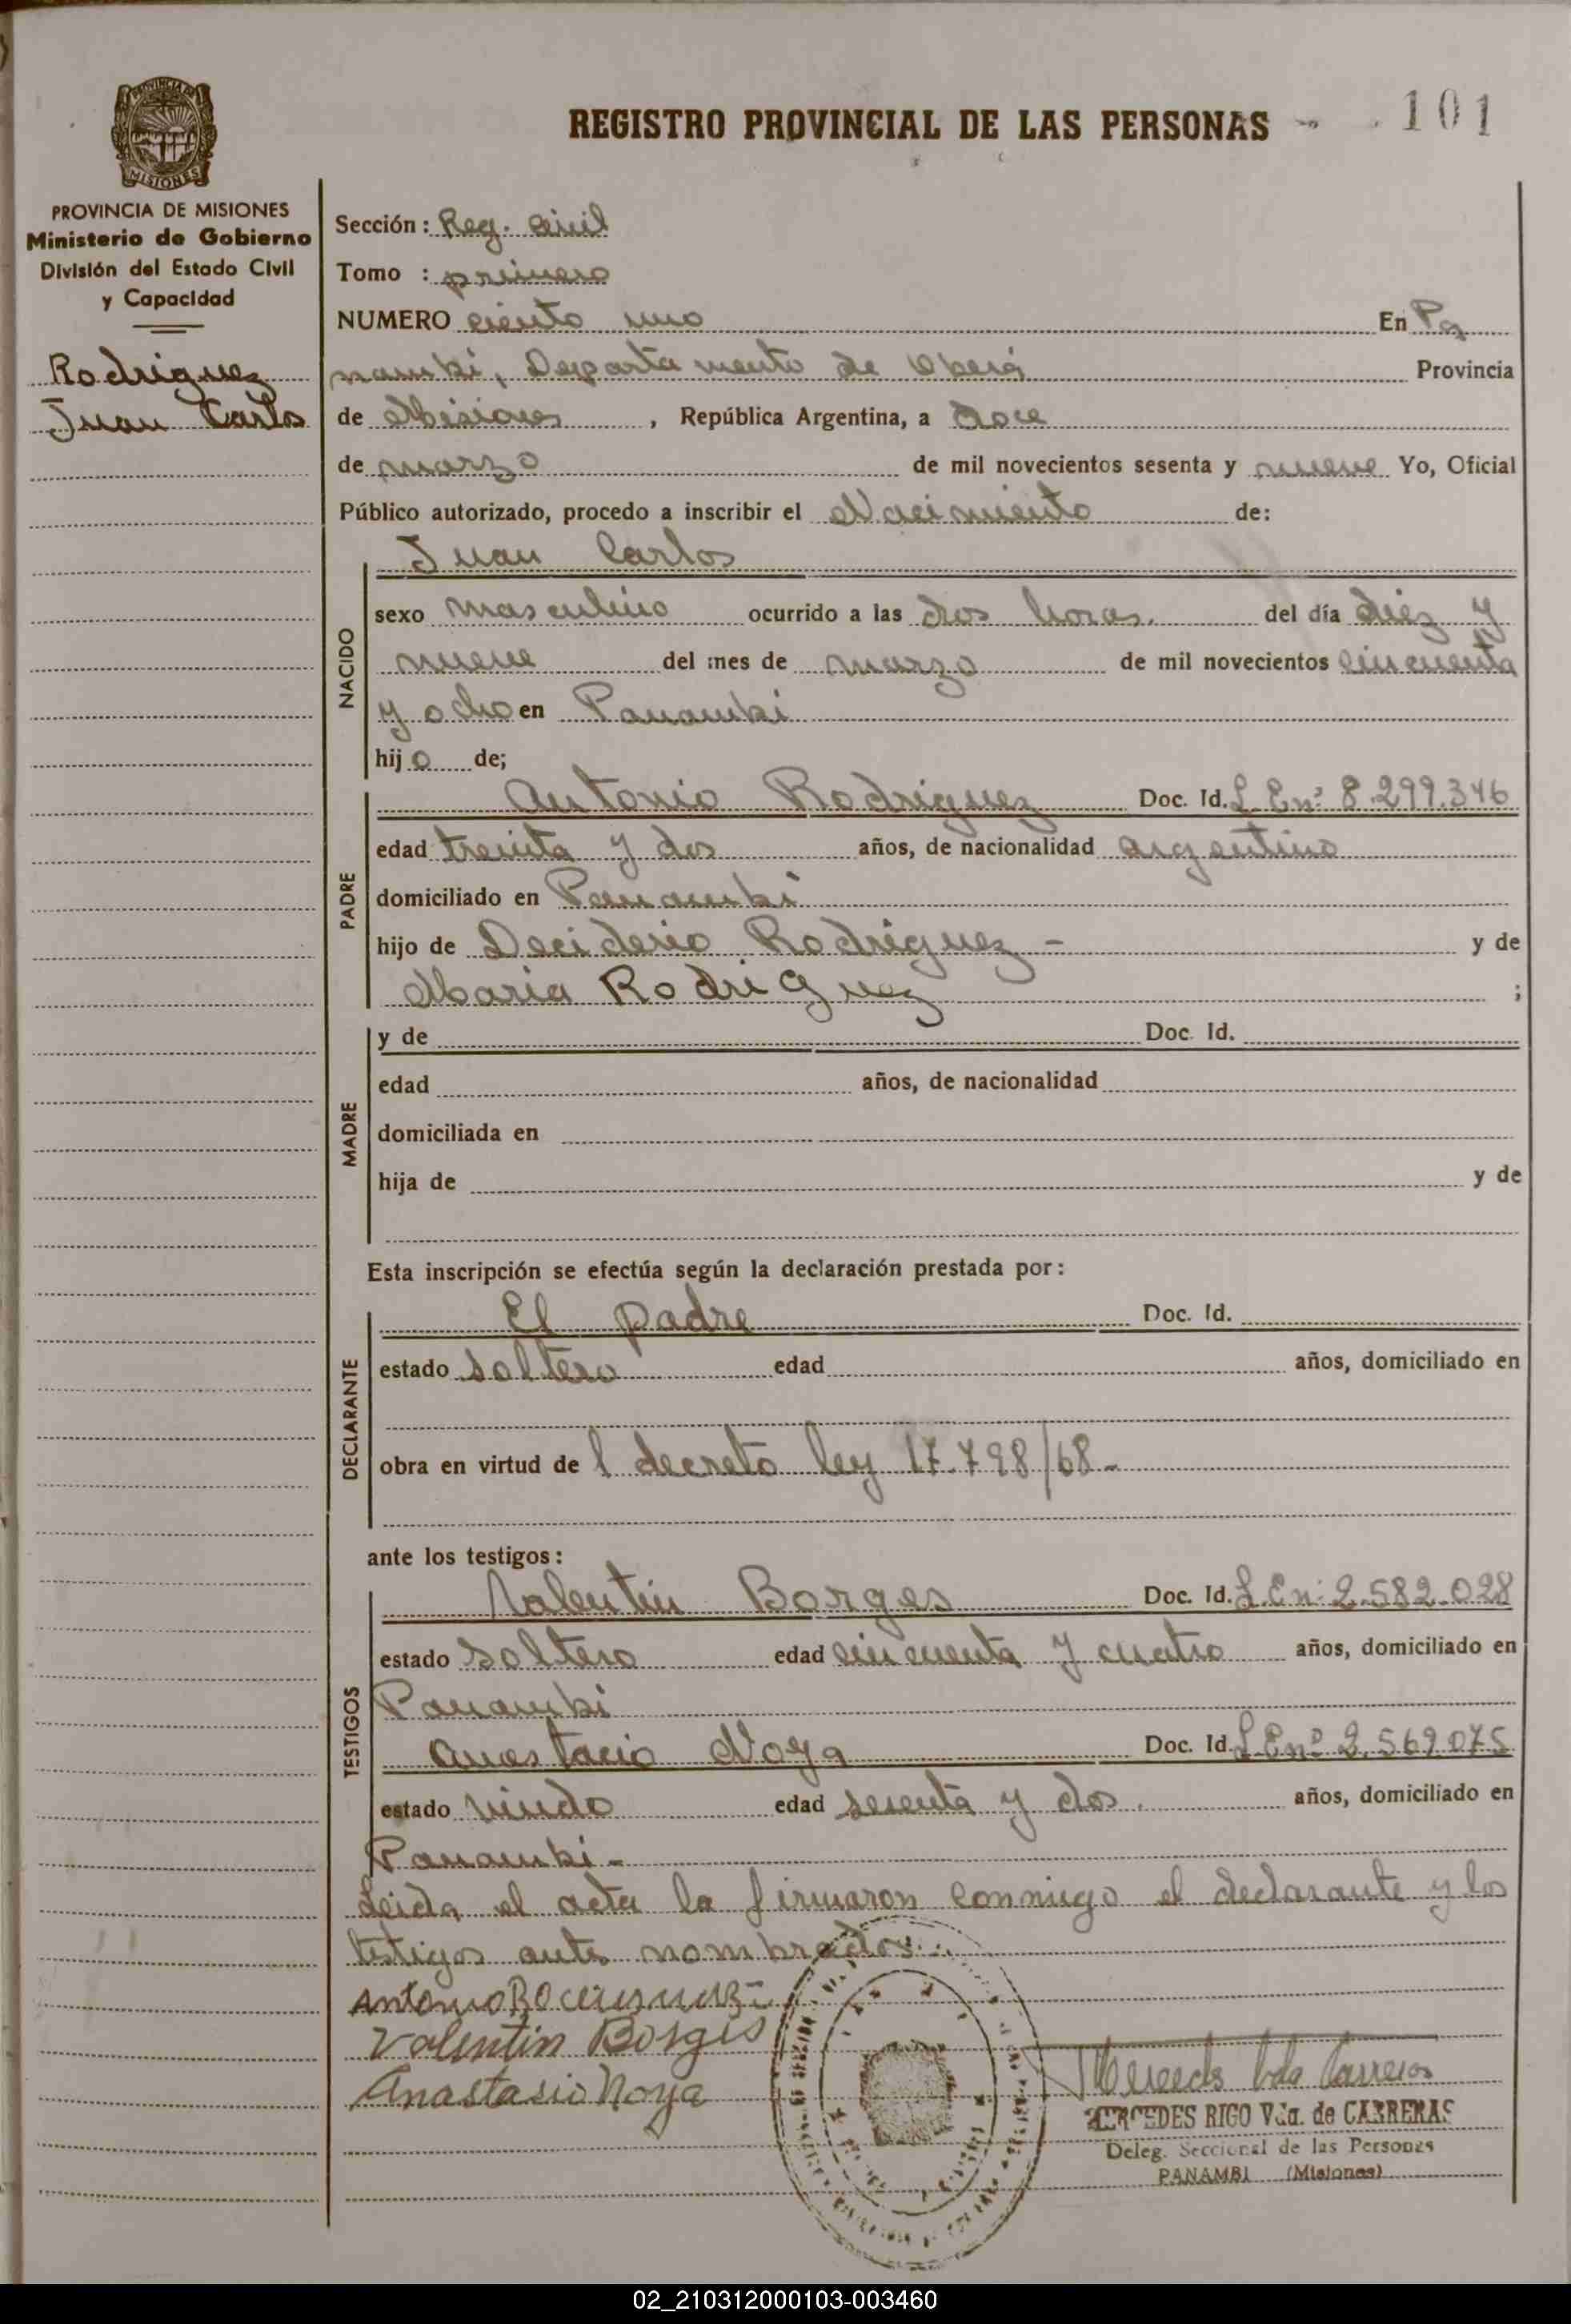 REGISTRO PROVINCIAL DE LAS PERSONAS
101
PROVINCIA DE MISIONES
MISIONES
PROVINCIA DE MISIONES
Ministerio de Gobierno
División del Estado Civil
y Capacidad
Rodriguez
Juan Carlos
Sección: Reg. Civil
Tomo : primero
NUMERO ciento uno En Pa
nambi, Departamento de Oberá Provincia
de Misiones, República Argentina, a doce
de marzo de mil novecientos sesenta y nueve Yo, Oficial
Público autorizado, procedo a inscribir el Nacimiento de:
NACIDO
Juan Carlos
sexo masculino ocurrido a las dos horas. del día diez y
nueve del mes de marzo de mil novecientos cincuenta
y ocho en Panambi
hijo de;
PADRE
Antonio Rodriguez Doc. Id. L.En° 8.299.346
edad treinta y dos años, de nacionalidad argentino
domiciliado en Panambi
hijo de Deciderio Rodriguez - y de
Maria Rodriguez ;
MADRE
y de Doc. Id.
edad años, de nacionalidad
domiciliada en
hija de y de
Esta inscripción se efectúa según la declaración prestada por:
DECLARANTE
El padre Doc. Id.
estado soltero edad años, domiciliado en
obra en virtud de l decreto ley 17.798/68-
ante los testigos:
TESTIGOS
Valentin Borges Doc. Id. L.En: 2.582.028
estado soltero edad cincuenta y cuatro años, domiciliado en
Panambi
Anastacio Noya Doc. Id. L.En° 2.569.075
estado viudo edad y dos. años, domiciliado en
Panambi-
Leida el acta la firmaron conmigo el declarante y los
testigos antes nombrados.
Antonio
Valentin Borges
Anastasio Noya
Mercedes Vda Carreras
MERCEDES RIGO Vda. de CARRERAS
Deleg. Seccional de las Personas
PANAMBI (Misiones)
02_210312000103-003460